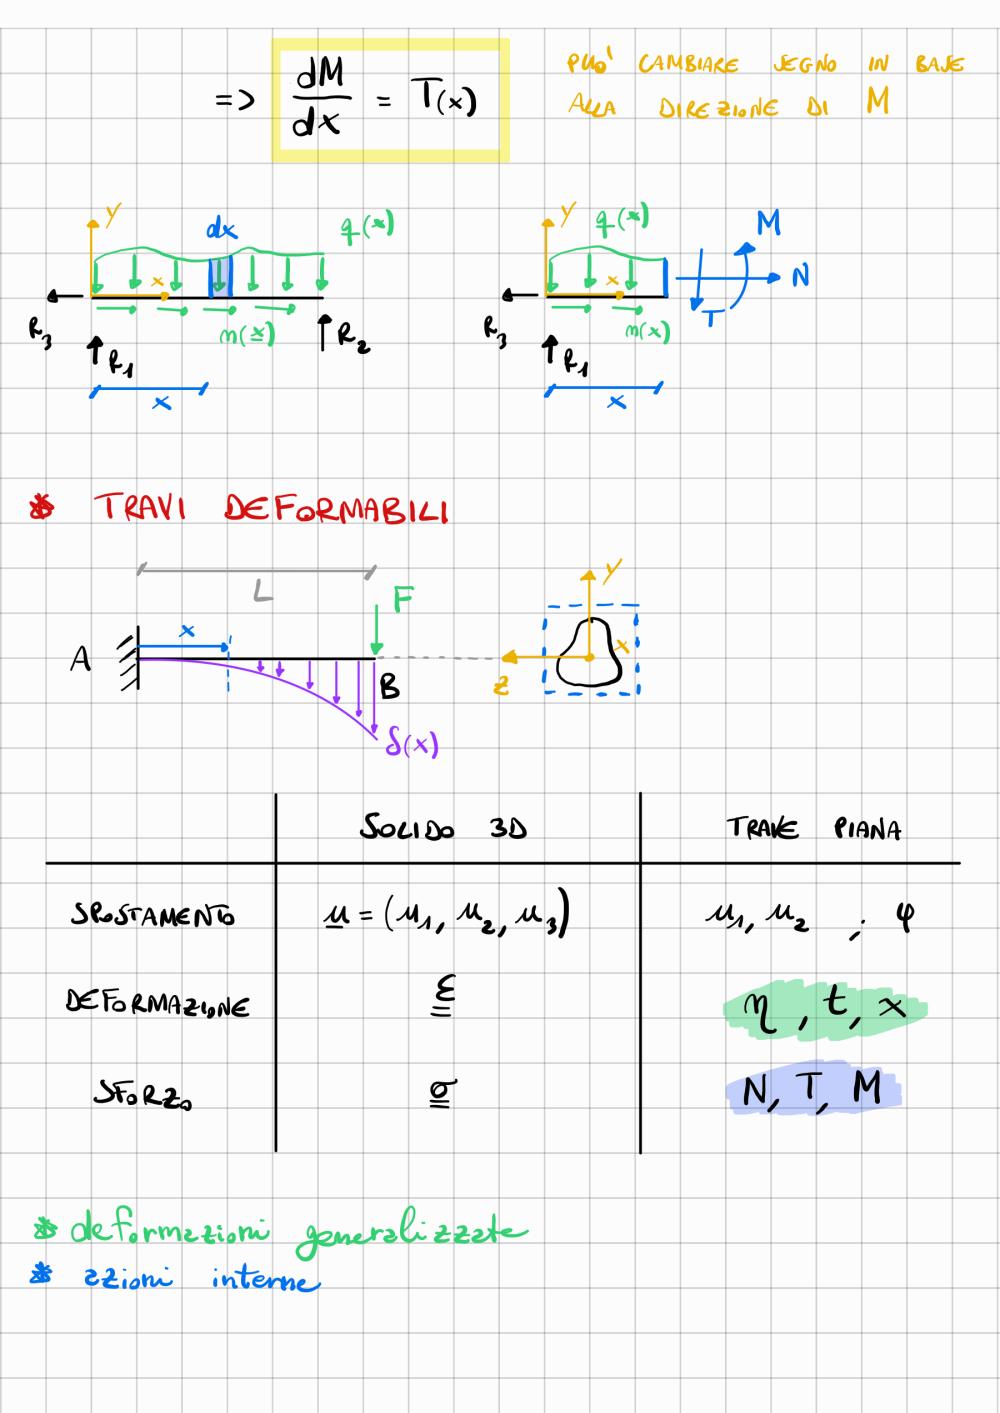 => dM/dx = T(x)
PUO' CAMBIARE SEGNO IN BASE
ALLA DIREZIONE DI M
y dx q(x)
x
R3 n(x) R2
R1
x
y q(x) M
x N
R3 n(x) T
R1
x
* TRAVI DEFORMABILI
L F y
A x B z x
δ(x)
SOLIDO 3D TRAVE PIANA
SPOSTAMENTO u = (u1, u2, u3) u1, u2 ; φ
DEFORMAZIONE ε η, t, x
SFORZO σ N, T, M
* deformazioni generalizzate
* azioni interne